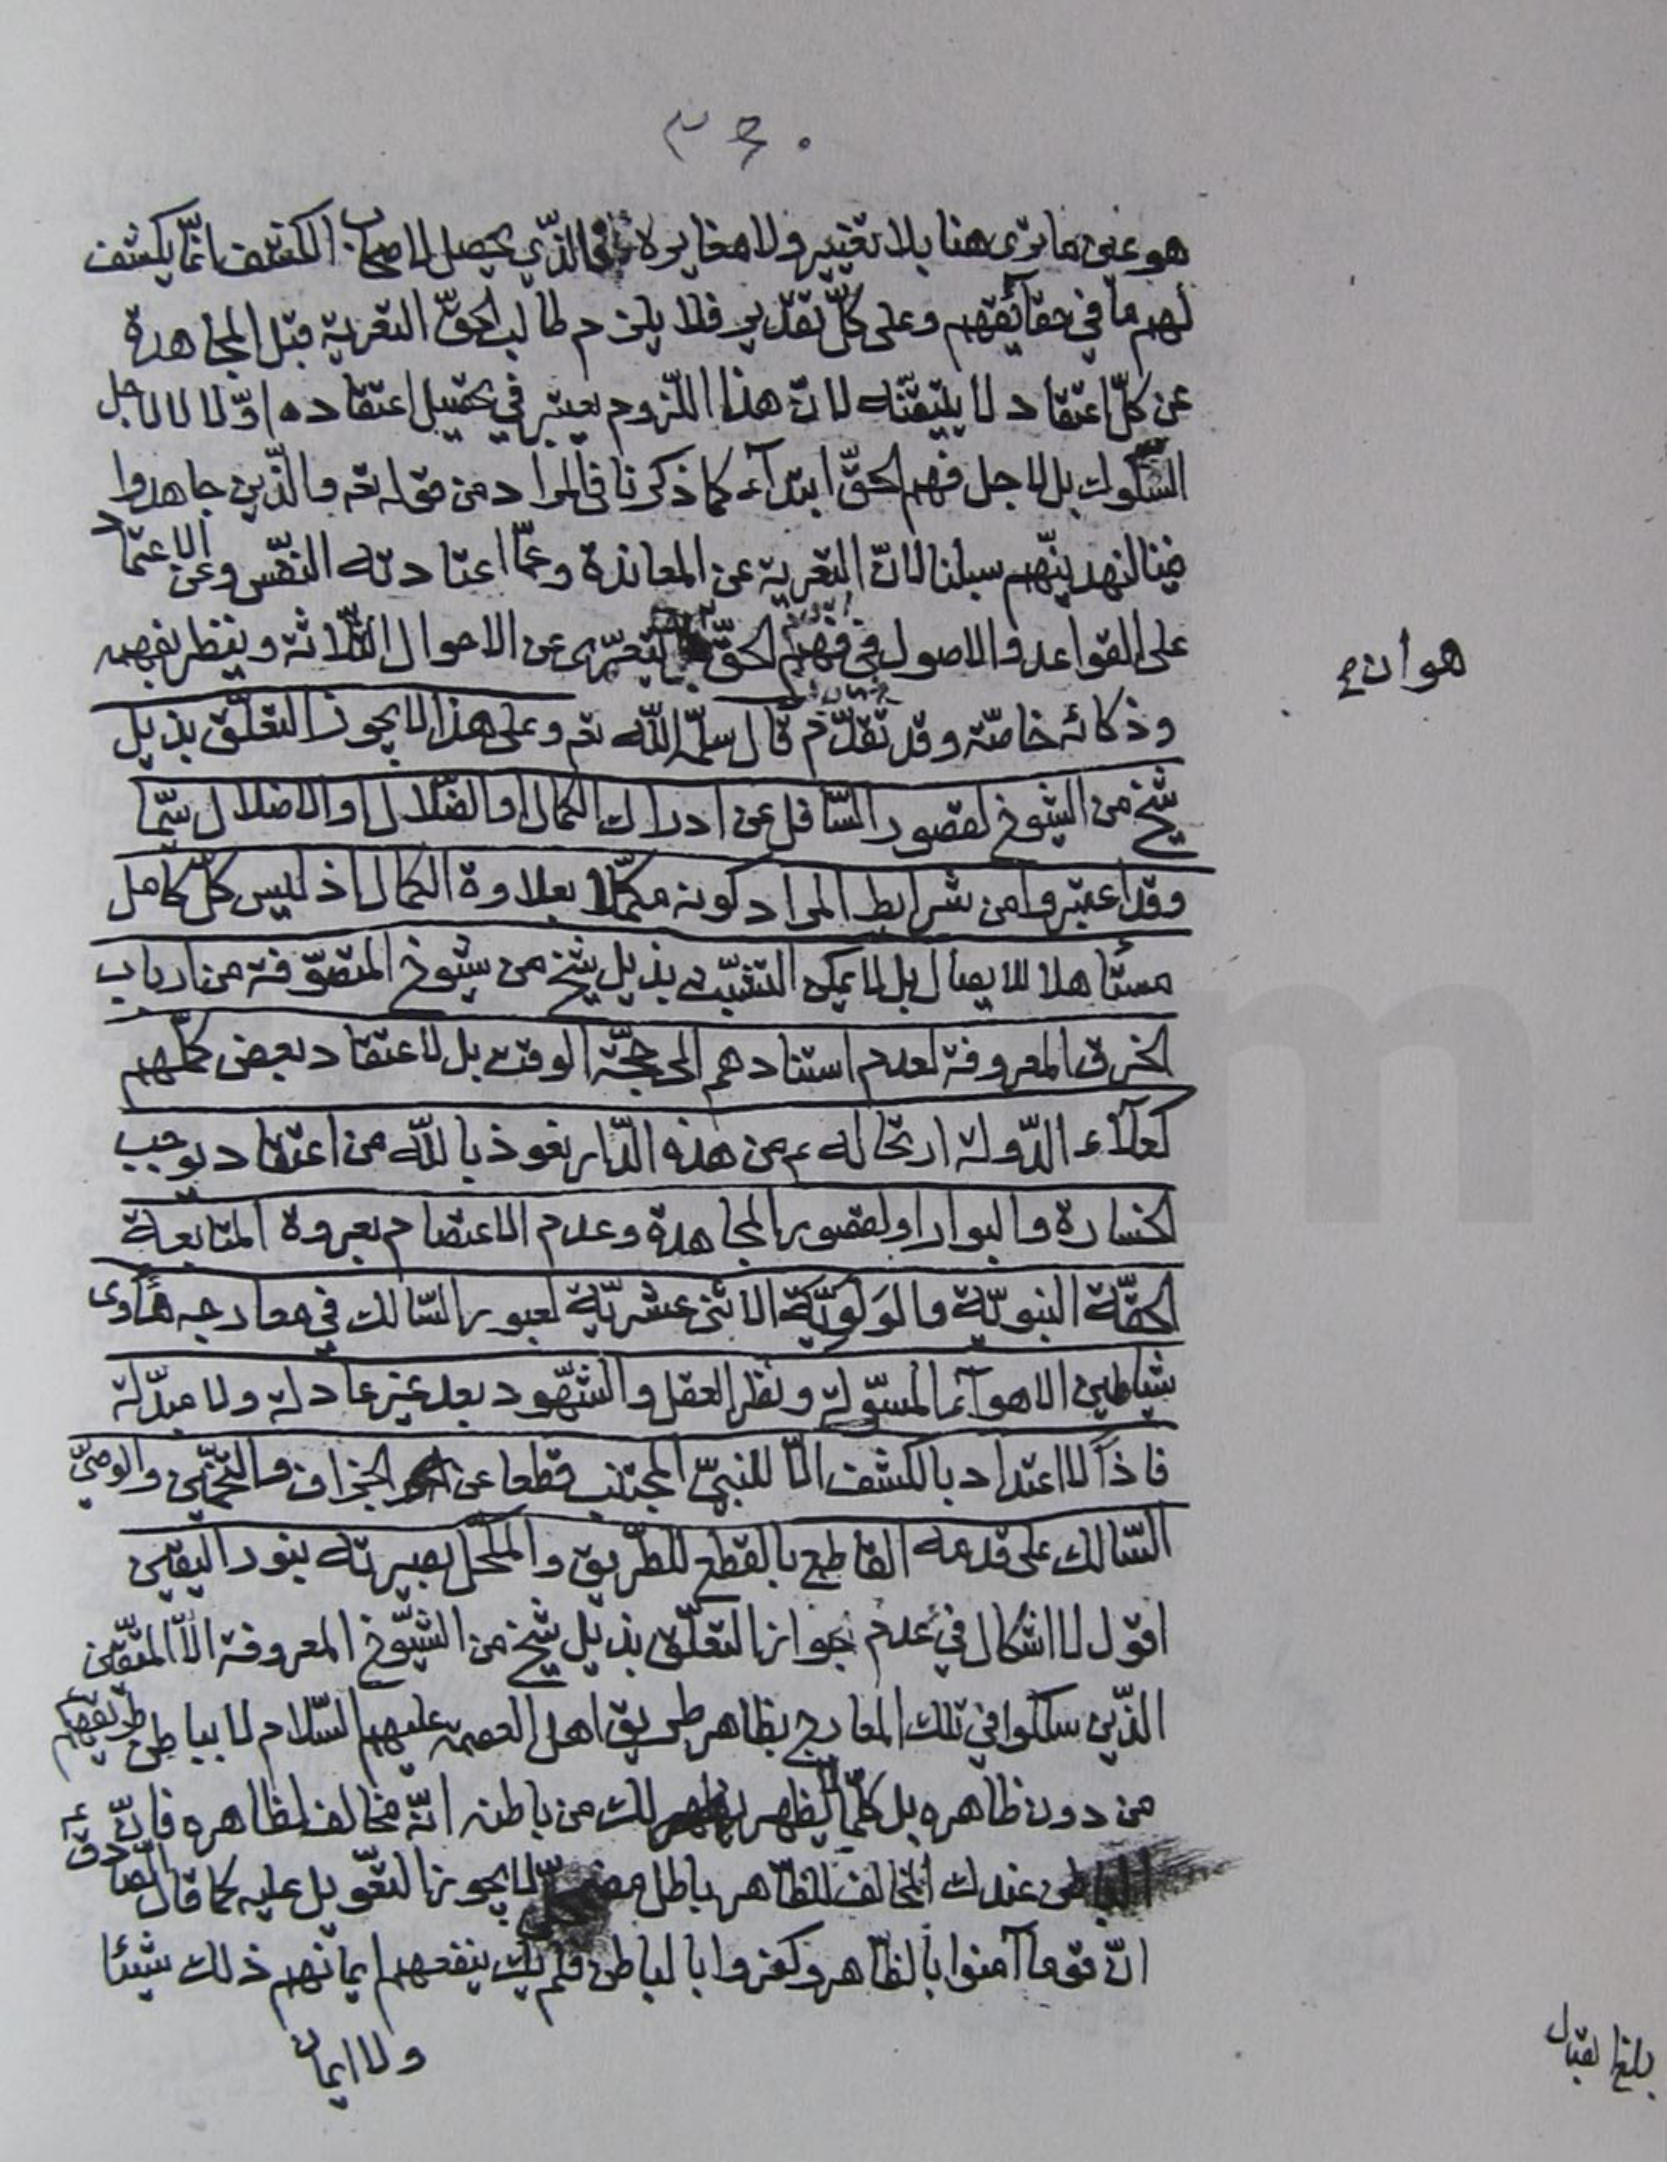 ٣٤٠
هو عين ما ترى هنا بلا تغيير ولا مغايرة فالذي يحصل لاصحاب الكشف انما يكشف
لهم ما في حقآئقهم وعلى كلّ تقدير فلا يلزم طالب الحقّ التعرية قبل المجاهدة
عن كلّ اعتقاد لا يتيقّنه لانّ هذا اللّزوم يعتبر في تحصيل اعتقاده اوّلا لا لاجل
السّلوك بل لاجل فهم الحقّ ابتدآء كما ذكرنا فالمراد من قوله تعه والّذين جاهدوا
فينا لنهدينّهم سبلنا لانّ التعرية عن المعاندة وعمّا اعتادته النفّس وعن الاعتماد
على القواعد والاصول في فهم الحقّ يتعرّى عن الاحوال الثّلاثة وينظر بفهمه
هو ان
وذكائه خاصّة وقد تقدّم قال سلّمه اللّه تعه وعلى هذا لا يجوز التعلّق بذيل
شيخ من الشيوخ لقصور السّافل عن ادراك الكمال والضّلال والاضلال سيّما
وقد اعتبروا من شرايط المراد كونه مكمّلا بعلاوة الكمال اذ ليس كلّ كامل
مستأهلا للايصال بل لا يمكن التشبّث بذيل شيخ من شيوخ المتصوّفة من ارباب
الخرق المعروفة لعدم استنادهم الى حجّة الوقت بل لاعتقاد بعض كمّلهم
كعلآء الدّولة ارتحاله ع من هذه الدّار نعوذ باللّه من اعتقاد يوجب
الخسارة والبوار او لقصور المجاهدة وعدم الاعتصام بعروة المتابعة
الحقّة النبويّة والولويّة الاثنى عشريّة لعبور السّالك في معارجه مأوى
شياطين الاهوآء المسوّلة ونظر العقل والشّهود بعد غير عادلة ولا مبدّلة
فاذاً لا اعتداد بالكشف الّا للنبيّ المجتنب قطعا عن الجزاف والتخمين والوصيّ
السّالك على قدمه القاطع بالقطع للطّريق والمكحّل بصيرته بنور اليقين
اقول لا اشكال في عدم جواز التعلّق بذيل شيخ من الشيّوخ المعروفة الّا المتّقين
الذّين سلكوا في تلك المعارج بظاهر طريق اهل العصمة عليهم السّلام لا بباطن طريقهم
من دون ظاهره بل كلّما يظهر لك من باطنه انّه مخالف لظاهره فانّ
الباطن عندك المخالف للظّاهر باطل لا يجوز التعّويل عليه كما قال الصّادق ع
انّ قوما آمنوا بالظّاهر وكفروا بالباطن فلم يك ينفعهم ايمانهم ذلك شيئا
ولا ايمان
بلغ قبال